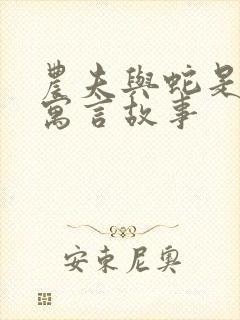 農夫與蛇是
寓言故事
安東尼奧